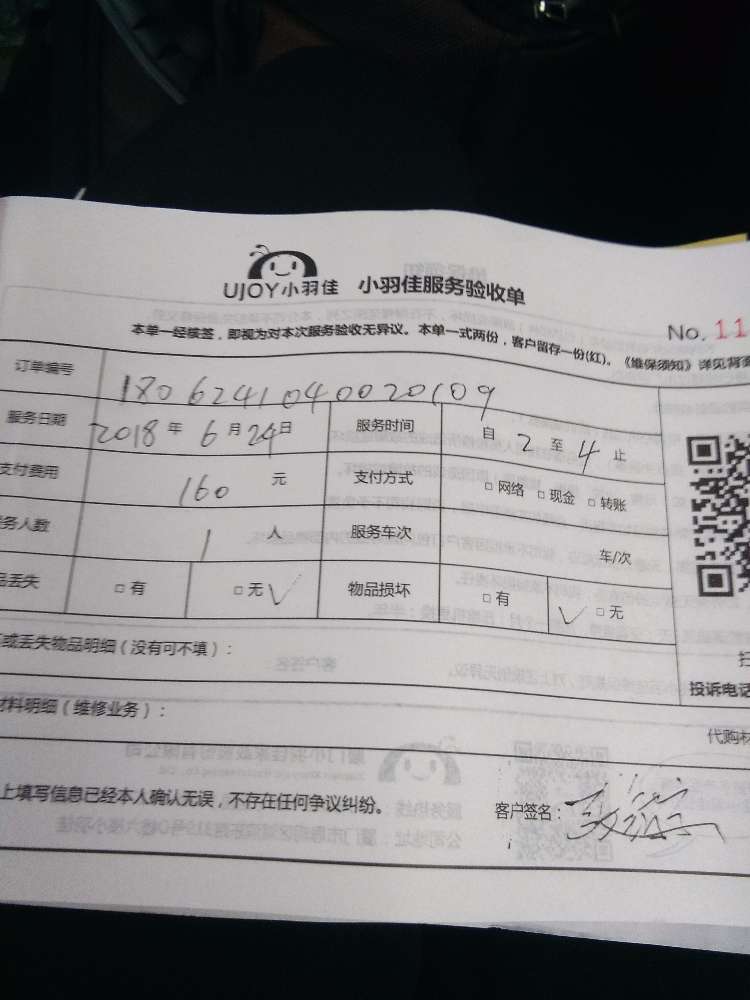 UJOY小羽佳 小羽佳服务验收单
本单一经核签，即视为对本次服务验收无异议。本单一式两份，客户留存一份(红)。《维保须知》详见背
No. 11
订单编号 1806241040020109
服务日期 2018年6月24日 服务时间 自2至4止
支付费用 160元 支付方式 □网络 □现金 □转账
务人数 1人 服务车次 车/次
品丢失 □有 □无√ 物品损坏 □有 √□无
或丢失物品明细（没有可不填）：
投诉电话
材料明细（维修业务）：
代购材
上填写信息已经本人确认无误，不存在任何争议纠纷。 客户签名：